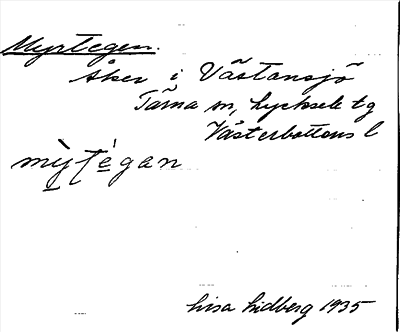 Myrtegen.
Åker i Västansjö
Tärna sn, Lycksele tg
Västerbottens l
mỳt́egan
Lisa Lidberg 1935